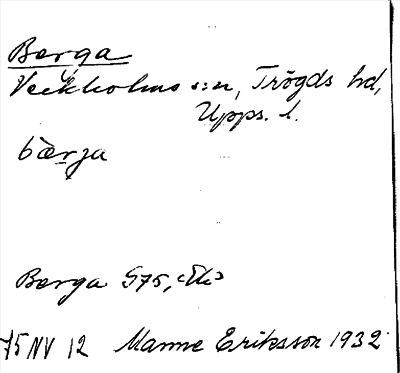 Berga
Veckholms s:n, Trögds hd,
Upps. l.
bærja
Berga 575,
75 NV 12 Manne Eriksson 1932